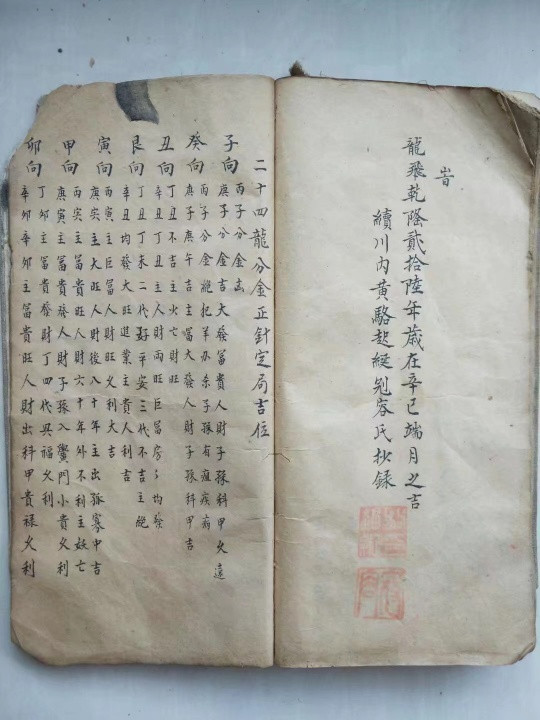 旹
龍飛乾隆貳拾陸年歲在辛巳端月之吉
續川內黃駱起綎剜容氏抄錄
二十四龍分金正針定局吉位
子向
丙子分金凶
庚子分金吉大發富貴人財子孫科甲久遠
癸向
丙子分金龍犯羊刃煞子孫有瘟疾病
庚子庚午吉主富大發人財子孫科甲吉
丑向
丁丑不吉主火亡財旺
辛丑丁丑主人財兩旺巨富房々均發
艮向
丁丑丁未二代好平安三代不吉主絕
辛丑均發大旺進業主貴人利吉
寅向
丙寅主巨富人財旺久利大吉
庚寅主大旺人財後八十年主出孤寡中吉
甲向
丙寅主富貴旺人財六十年外不利主妖亡
庚寅主富貴發人財子孫入黌門小貴久利
卯向
丁卯主富貴發財丁四代興福久利
辛卯辛卯主富貴旺人財出科甲貴祿久利